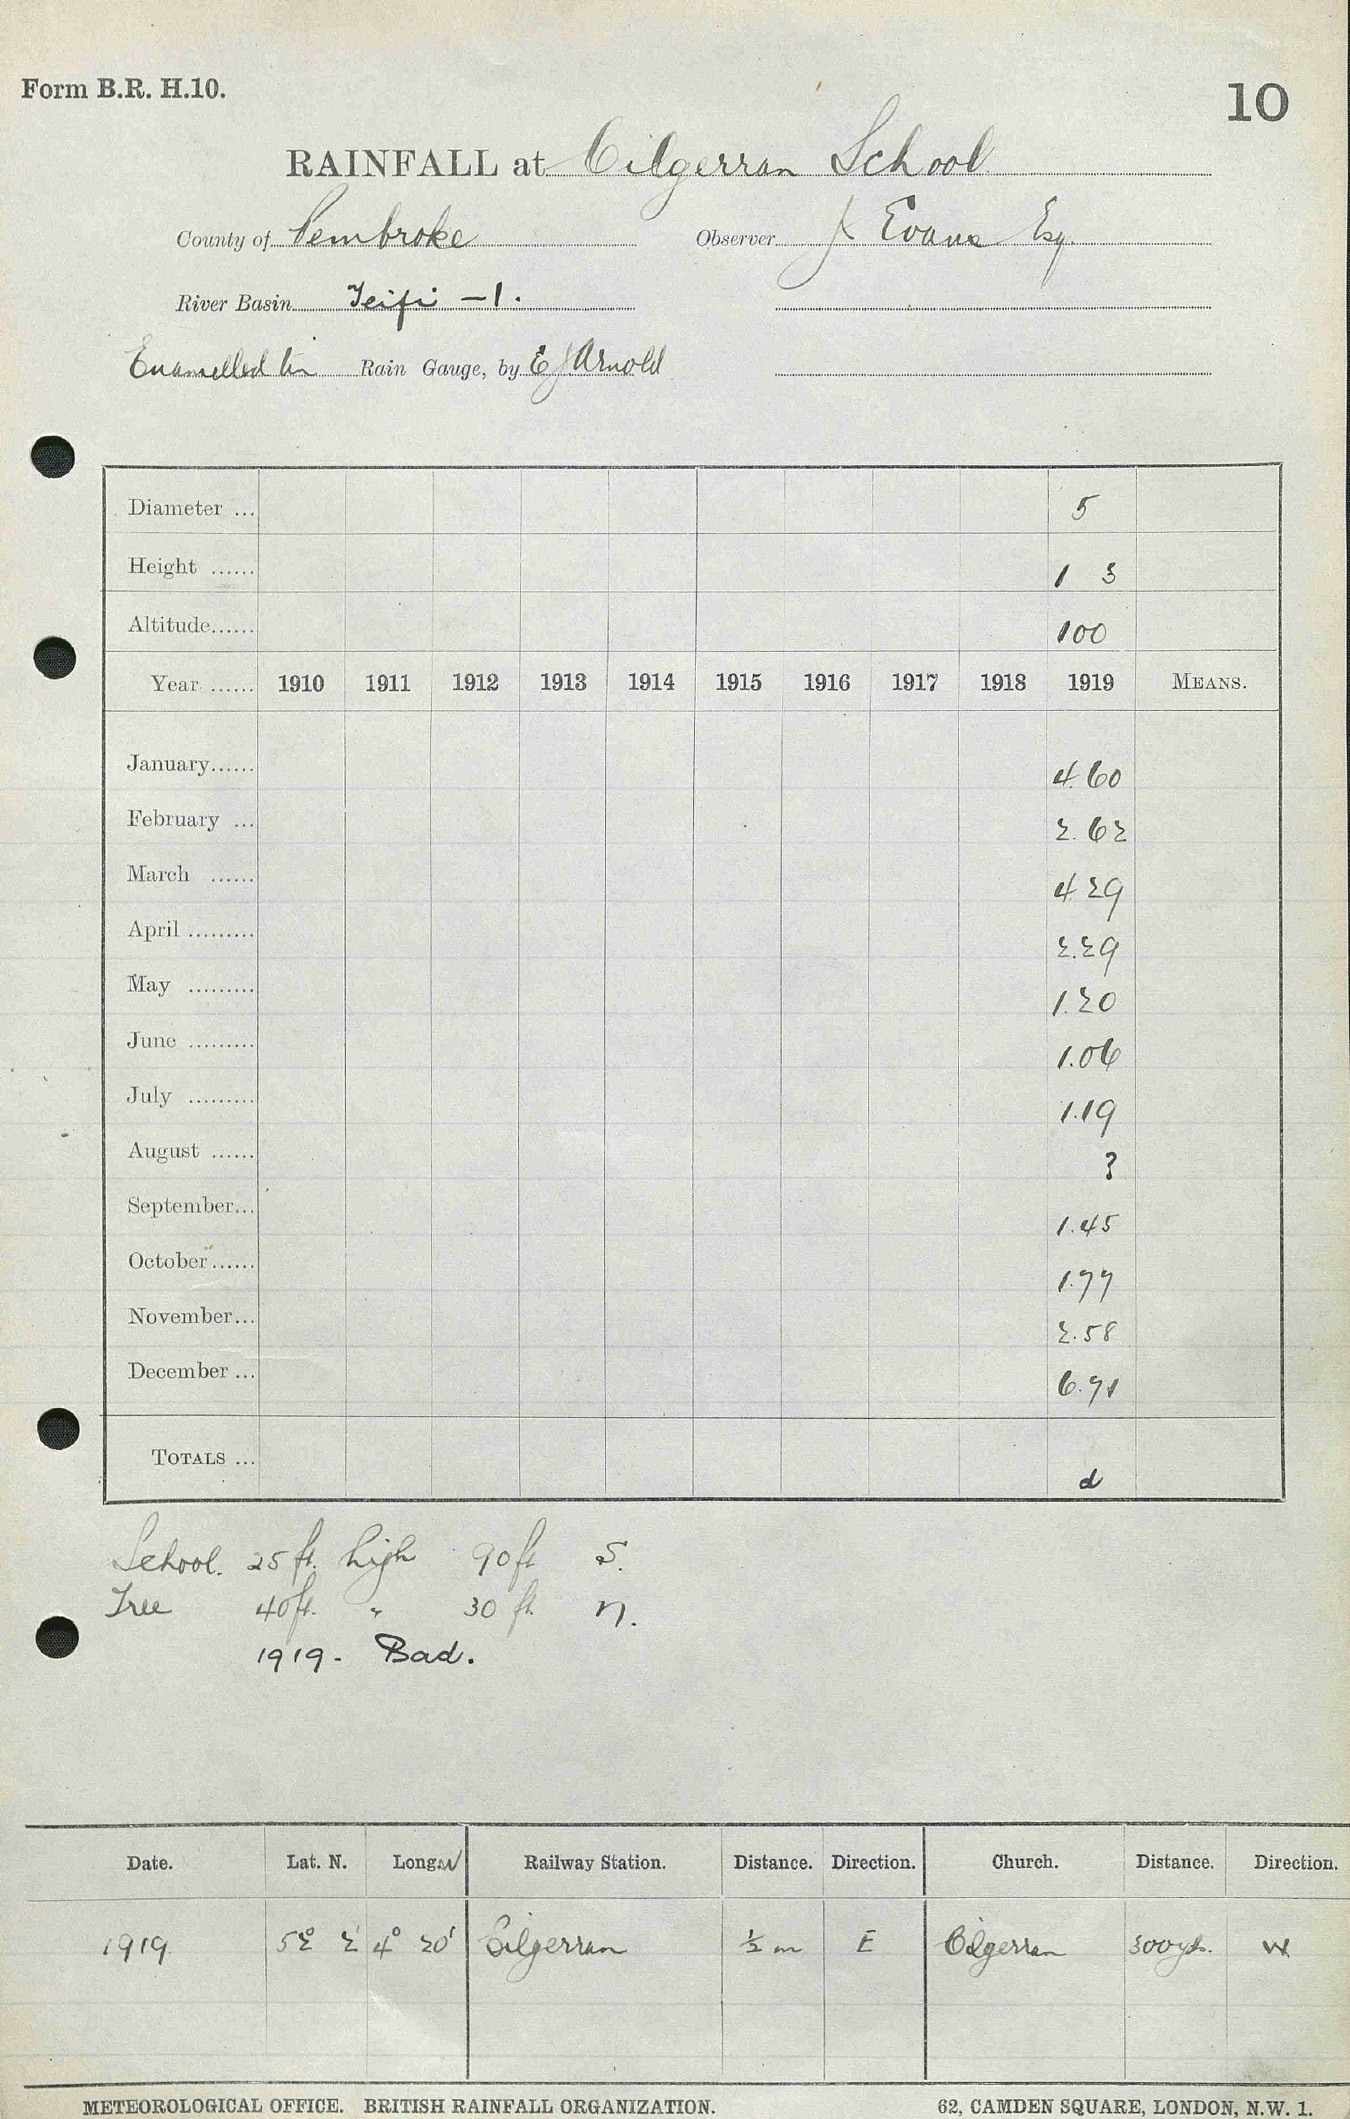 Form B.R. H.10.
10
RAINFALL at Cilgerran School
County of Pembroke Observer J Evans Esq.
River Basin Teifi -1.
Enamelled tin Rain Gauge, by E J Arnold
Diameter ... 5
Height ...... 1 3
Altitude...... 100
Year ...... 1910 1911 1912 1913 1914 1915 1916 1917 1918 1919 MEANS.
January...... 4.60
February ... 2.62
March ...... 4 29
April ......... 2.29
May ......... 1.20
June ......... 1.06
July ......... 1.19
August ...... ?
September... 1.45
October...... 1.77
November... 2.58
December ... 6.71
TOTALS ... d
School. 25 ft. high 90 ft S.
Tree 40 ft. " 30 ft. N.
1919. Bad.
Date. Lat. N. Long. W Railway Station. Distance. Direction. Church. Distance. Direction.
1919 52° 2' 4° 20' Cilgerran ½ m E Cilgerran 300 yds. W
METEOROLOGICAL OFFICE. BRITISH RAINFALL ORGANIZATION. 62, CAMDEN SQUARE, LONDON, N.W. 1.